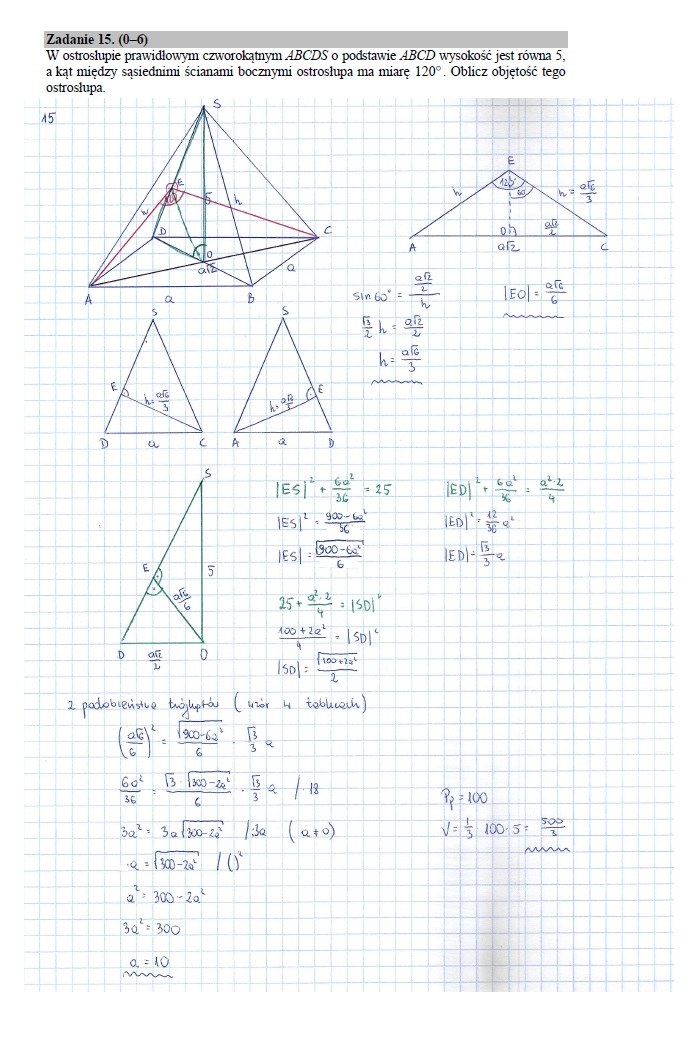 Zadanie 15. (0–6)
W ostrosłupie prawidłowym czworokątnym ABCDS o podstawie ABCD wysokość jest równa 5,
a kąt między sąsiednimi ścianami bocznymi ostrosłupa ma miarę 120°. Oblicz objętość tego
ostrosłupa.
15
S
E
h
5
D
O
C
a√2
a
A
a
B
E
120°
60°
h
h = a√6/3
O
a√2/2
A
a√2
C
sin 60° = (a√2/2)/h
|EO| = a√6/6
√3/2 h = a√2/2
h = a√6/3
S
S
E
h = a√6/3
E
h = a√6/3
D
a
C
A
a
D
S
E
5
a√6/6
D
a√2/2
O
|ES|² + 6a²/36 = 25
|ED|² + 6a²/36 = a²·2/4
|ES|² = (900-6a²)/36
|ED|² = 12/36 a²
|ES| = √(900-6a²)/6
|ED| = √3/3 a
25 + a²·2/4 = |SD|²
(100+2a²)/4 = |SD|²
|SD| = √(100+2a²)/2
z podobieństwa trójkątów (wzór w tablicach)
(a√6/6)² = √(900-6a²)/6 · √3/3 a
6a²/36 = √3·√(300-2a²)/6 · √3/3 a /·18
3a² = 3a√(300-2a²) /:3a (a≠0)
a = √(300-2a²) /()²
a² = 300-2a²
3a² = 300
a = 10
Pp = 100
V = 1/3 · 100 · 5 = 500/3